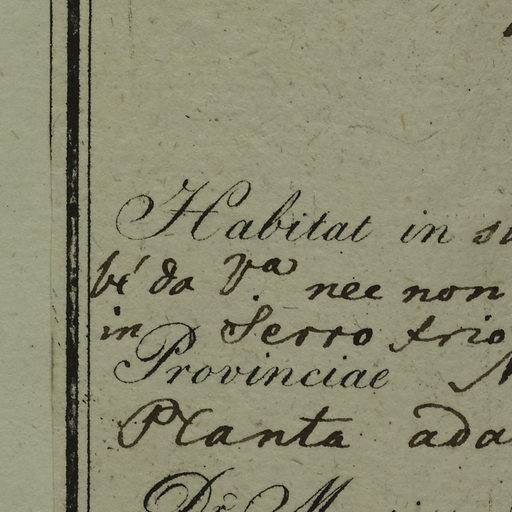 Habitat in su
bé da va nec non
in Serro frio
Provinciae
Planta ada
Dr. M